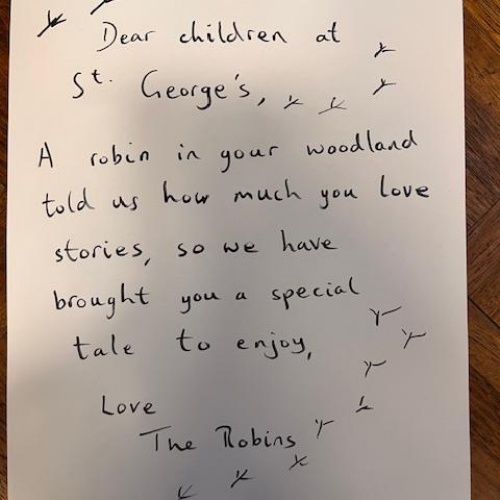 Dear children at
St. George's,
A robin in your woodland
told us how much you love
stories, so we have
brought you a special
tale to enjoy,
Love
The Robins